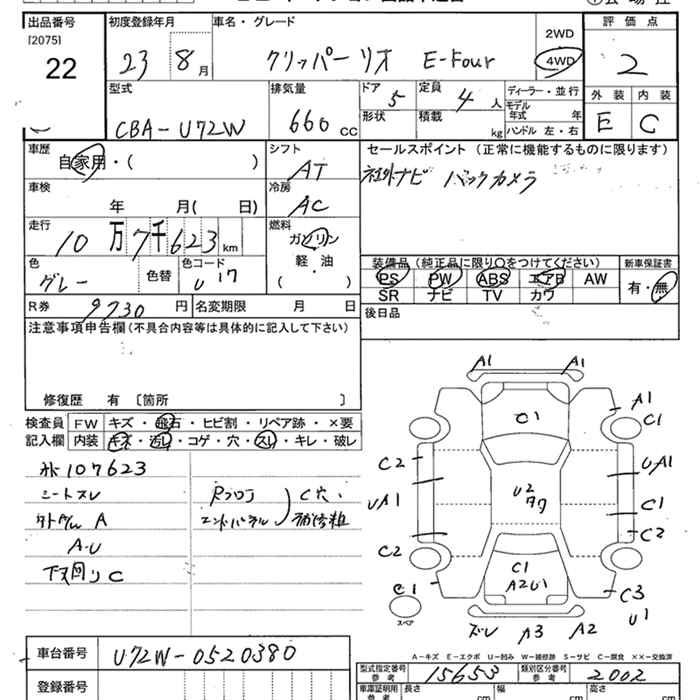 出品番号
[2075]
22
初度登録年月
23 8月
車名・グレード
クリッパーリオ E-Four
2WD
4WD
評価点
2
外装 内装
E C
型式
CBA-U72W
排気量
660 cc
ドア 5
形状
定員 4人
積載 kg
ディーラー・並行
モデル年式 年
ハンドル 左・右
車歴
自家用・( )
シフト
AT
セールスポイント (正常に機能するものに限ります)
社外ナビ バックカメラ
車検
年 月( 日)
冷房
AC
走行
10万7千623km
燃料
ガソリン
軽・油
( )
色
グレー
色替
色コード
U17
装備品 (純正品に限り○をつけてください)
PS PW ABS エアB AW
SR ナビ TV カワ
新車保証書
有・無
R券 9730円
名変期限 月 日
後日品
注意事項申告欄(不具合内容等は具体的に記入して下さい)
修復歴 有〔箇所 〕
検査員記入欄
FW キズ・飛石・ヒビ割・リペア跡・×要
内装 キズ・汚レ・コゲ・穴・スレ・キレ・破レ
107623
シートスレ
A
A-U
下回りC
Rフロア
エンドパネル
C穴
補修粗
A1 A1
A1
C1
C1
C2
UA1
U2
UA1
C1
C2
C2
C1
A2U1
C1
スペア
C3
U1
ズレ A3 A2
A-キズ E-エクボ U-凹み W-補修跡 S-サビ C-腐食 ××-交換済
車台番号
U72W-0520380
登録番号
型式指定番号
参考
15653
類別区分番号
参考
2002
車庫証明用
参考
長さ cm
幅 cm
高さ cm